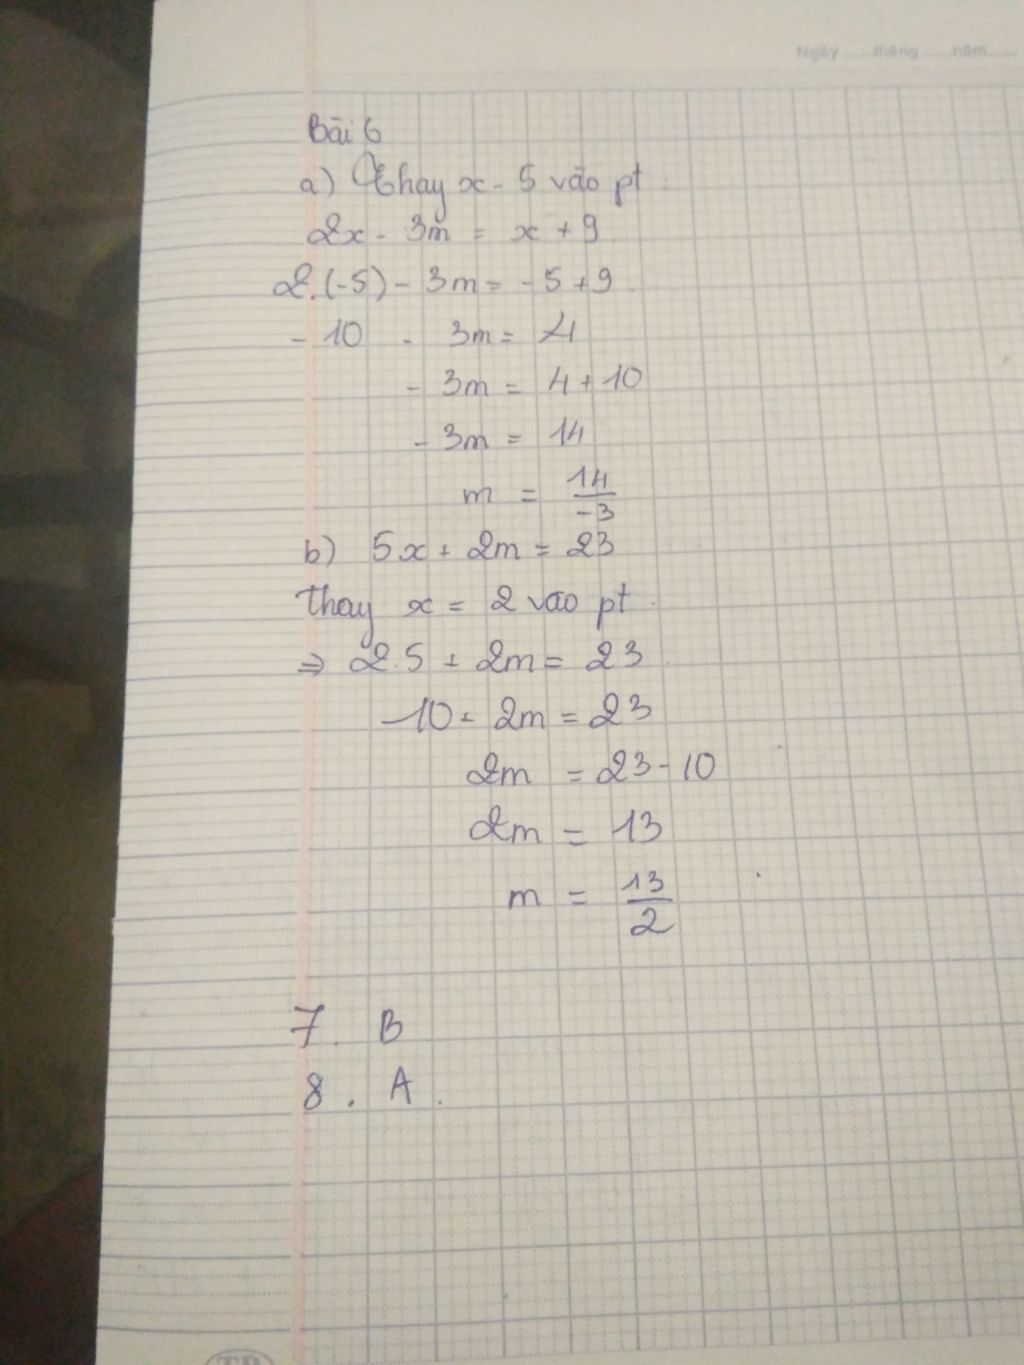 Ngày ..... tháng ..... năm.....
Bài 6
a) Thay x - 5 vào pt
2x - 3m = x + 9
2.(-5) - 3m = -5 + 9
- 10 - 3m = 4
- 3m = 4 + 10
- 3m = 14
m = 14/-3
b) 5x + 2m = 23
Thay x = 2 vào pt.
⇒ 2.5 + 2m = 23
10 + 2m = 23
2m = 23 - 10
2m = 13
m = 13/2
7. B
8. A.